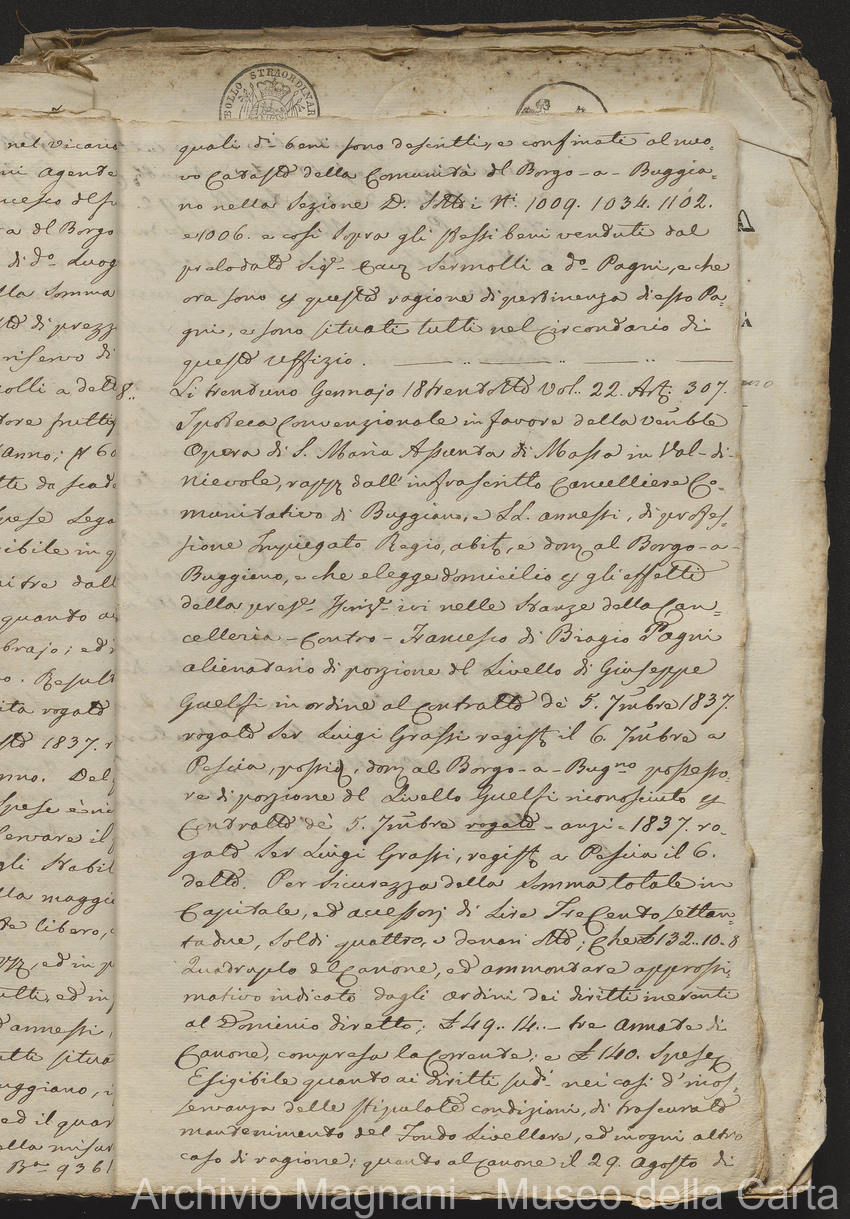 BOLLO STRAORDINAR
nel vicario
ni agente
ncesco del fu
a del Borgo
di do. Luog
lla Somma
di prezz
riservo di
olli a dett
tore frutti
anno;
te da scad
pese Lega
ibile in
itre dall
quanto ai
braio; ed
o. Result
ita rogato
1837.
nno. Del
spese è
servare il
gli stabil
lla maggi
te libero,
ed in
ulti, ed in
d'annessi,
utti situa
uggiano,
ed il quar
ella misur
Bra 9361
quali di- beni sono descritti, e confinati al nuo=
vo Catasto della Comunità del Borgo-a-Buggia=
no nella Sezione D. Sotto i Ni. 1009. 1034. 1102.
e 1006. e così sopra gli stessi beni venduti dal
prelodato Sigr. Cav. Sermolli a do. Pagni, e che
ora sono p questo ragione di pertinenza di esso Pa=
gni, e sono situati tutti nel Circondario di
questo Uffizio.
8..
Li trentuno Gennajo 18trentotto Vol. 22. Art. 307.
Ipoteca Convenzionale in favore della Venble
Opera di S. Maria Assunta di Massa in Val-di-
nievole, rapp dall'infrascritto Cancelliere Co=
munitativo di Buggiano, e Ld. annessi, di profes=
sione Impiegato Regio, abit, e dom al Borgo-a-
Buggiano, e che elegge domicilio p gli effetti
della prest. Iscriz. ivi nelle stanze della Can=
celleria - Contro - Francesco di Biagio Pagni
alienatario di porzione del Livello di Giuseppe
Guelfi in ordine al Contratto de' 5. 7mbre 1837.
rogato Ser Luigi Grassi regist il 6. 7mbre a
Pescia, possid, dom al Borgo-a-Bugno possesso=
re di porzione del Livello Guelfi riconosciuto p
Contratto de' 5. 7mbre rogato - anzi = 1837. ro=
gato Ser Luigi Grassi, regist a Pescia il 6.
detto. Per Sicurezza della Somma totale in
Capitale, ed accessorj di Lire TreCento settan=
tadue, Soldi quattro, e denari otto; Che £132..10..8
Quadruplo del Canone, ed ammontare approssi=
mativo indicato dagli ordini dei diritti inerenti
al Dominio diretto; £49..14..- tre annate di
Canone, compresa la Corrente; e £140. Spese
Esigibile quanto ai diritti sudi- nei casi d'inos=
servanza delle stipulate condizioni, di trascurato
mantenimento del Fondo Livellare, ed in ogni altro
caso di ragione; quanto al Canone il 29. Agosto di
Archivio Magnani - Museo della Carta